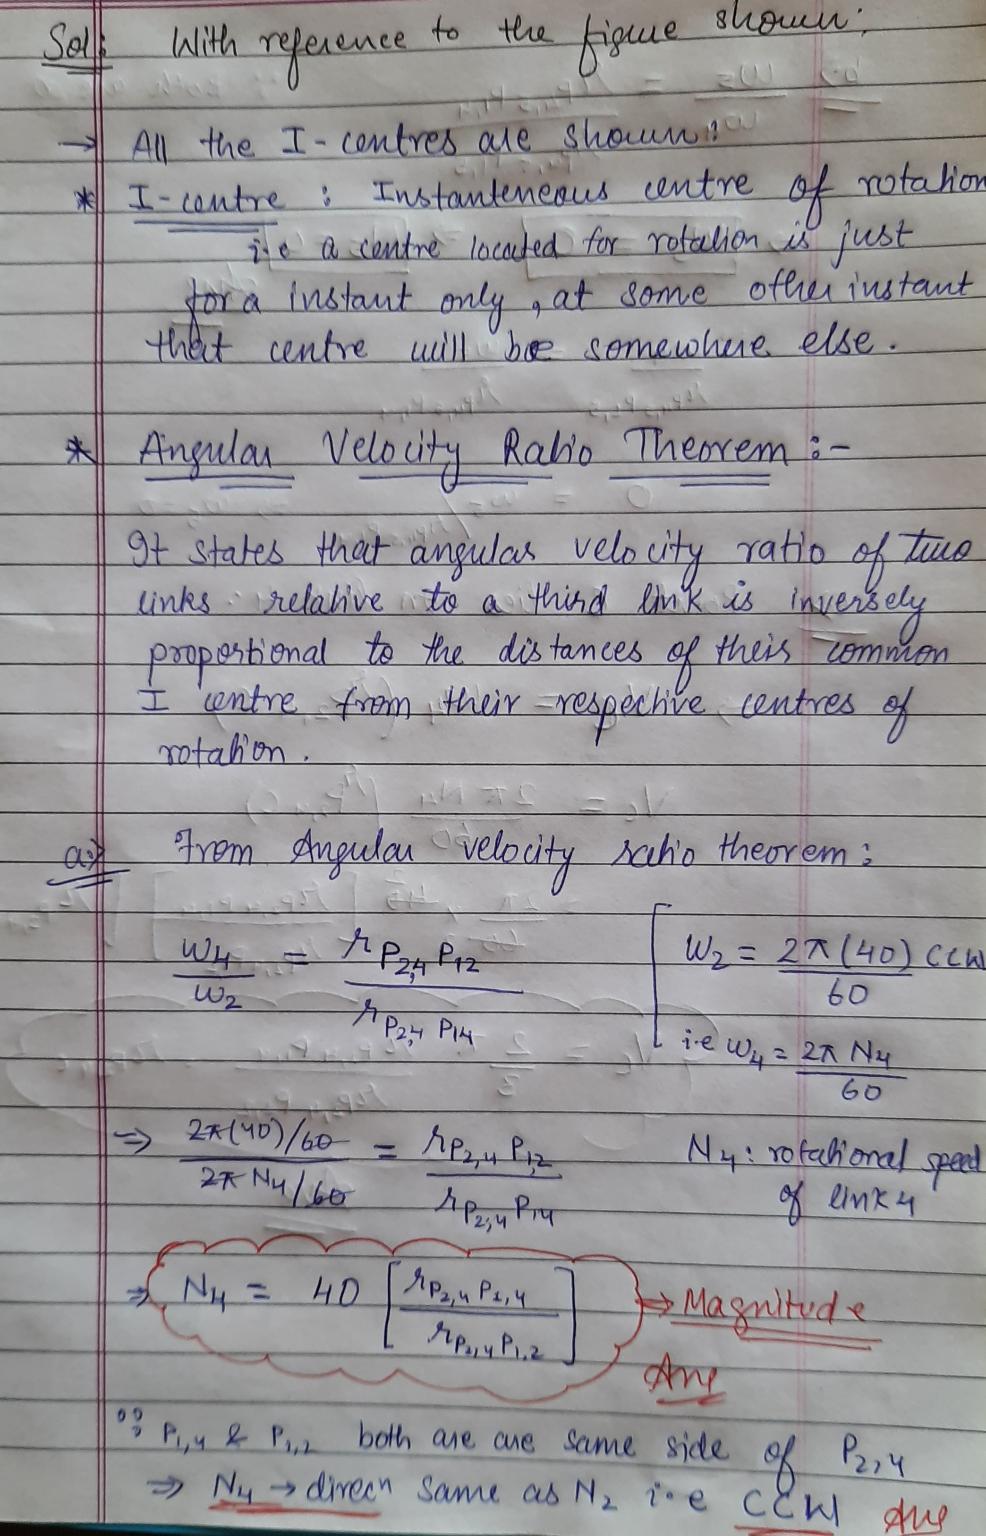 Sol: With reference to the figure shown:
→ All the I-centres are shown:
* I-centre : Instanteneous centre of rotation
i.e a centre located for rotation is just
for a instant only, at some other instant
that centre will be somewhere else.
* Angular Velocity Ratio Theorem :-
It states that angular velocity ratio of two
links relative to a third link is inversely
proportional to the distances of their common
I centre from their respective centres of
rotation.
a:> From Angular velocity ratio theorem:
ω4/ω2 = r P2,4 P12 / r P2,4 P14 [ ω2 = 2π(40)/60 CCW
i.e ω4 = 2π N4/60
⇒ 2π(40)/60 / 2π N4/60 = r P2,4 P1,2 / r P2,4 P1,4 N4: rotational speed
of link 4
⇒ N4 = 40 [ r P2,4 P1,4 / r P2,4 P1,2 ] ⇒ Magnitude
Ans
∵ P1,4 & P1,2 both are are same side of P2,4
⇒ N4 → direcn same as N2 i.e CCW Ans